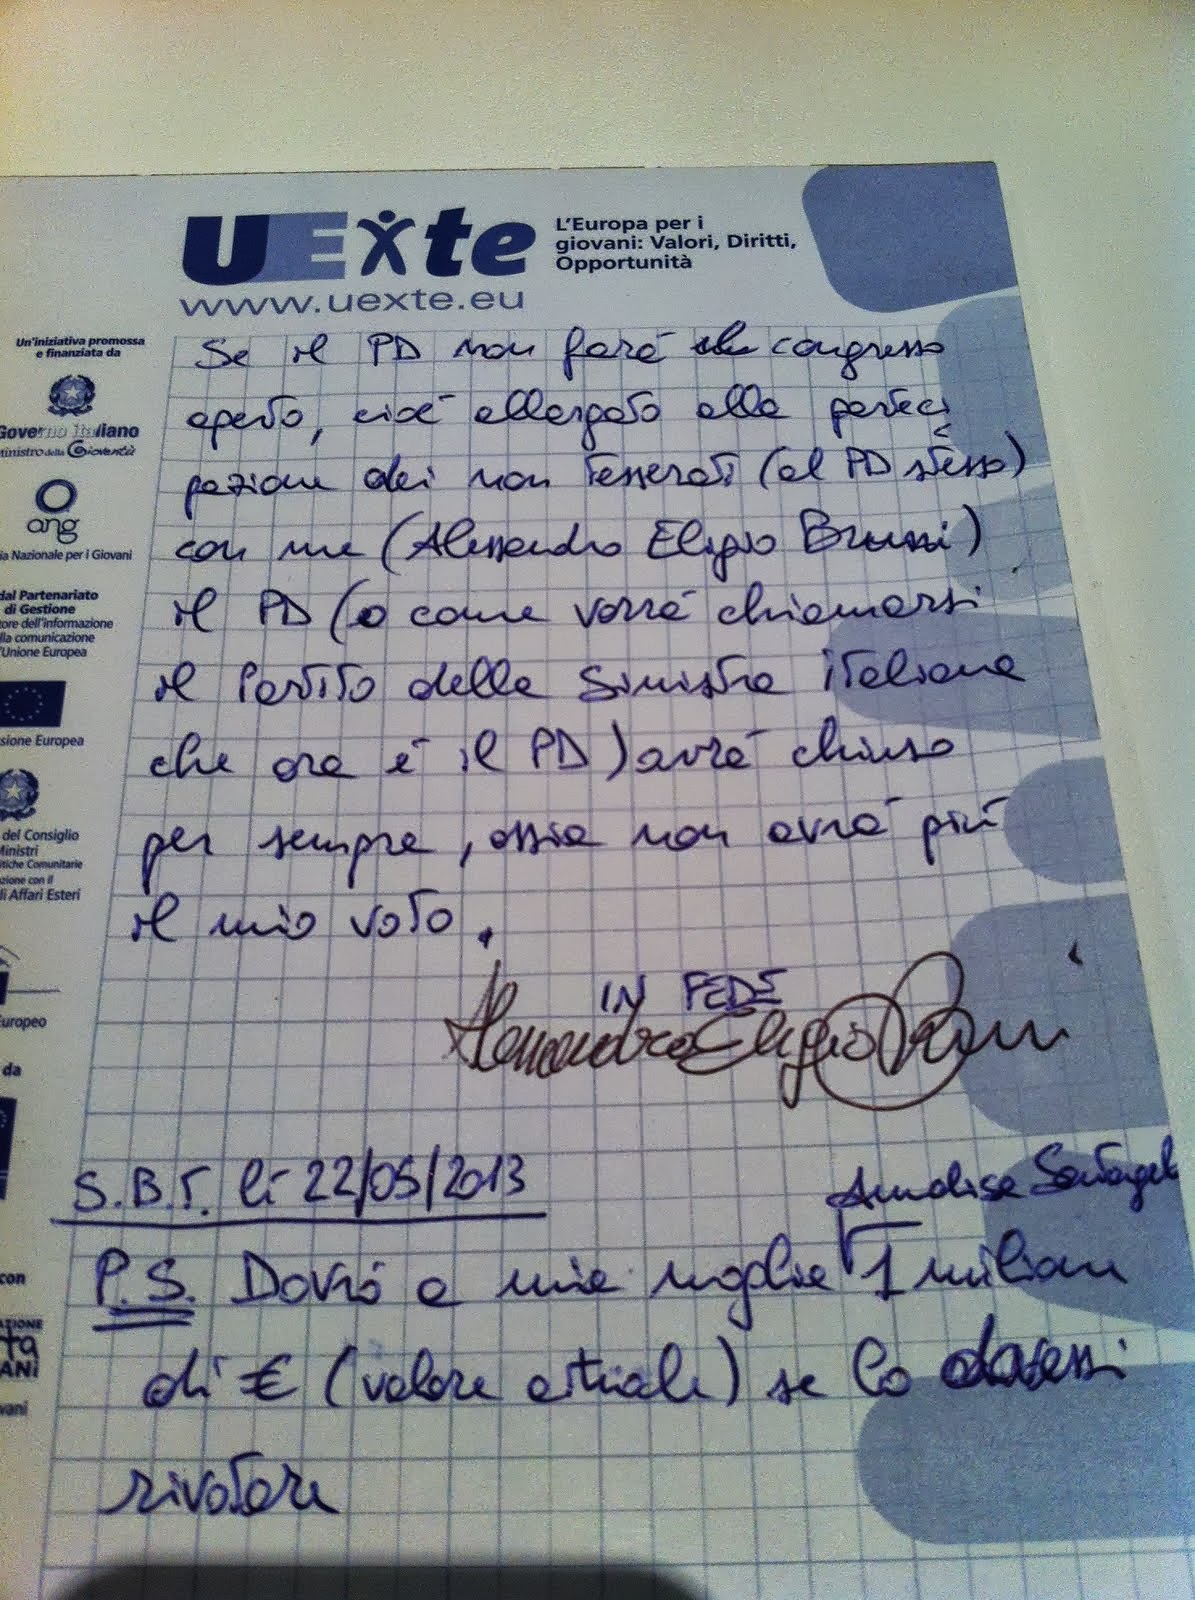 UExte
L'Europa per i
giovani: Valori, Diritti,
Opportunità
www.uexte.eu
Un'iniziativa promossa
e finanziata da
Governo Italiano
Ministro della Gioventù
ang
ia Nazionale per i Giovani
dal Partenariato
di Gestione
tore dell'informazione
lla comunicazione
'Unione Europea
sione Europea
del Consiglio
Ministri
itiche Comunitarie
zione con il
li Affari Esteri
Europeo
da
con
AZIONE
ta
ANi
vani
Se il PD non farà congresso
aperto, cioè allargato alla parteci
pazione dei non tesserati (al PD stesso)
con me (Alessandro Eligio Bruni)
il PD (o come vorrà chiamarsi
il Partito della Sinistra italiana
che ora è il PD) avrà chiuso
per sempre, ossia non avrà più
il mio voto.
IN FEDE
Alessandro Eligio Bruni
S.B.T. li 22/05/2013
Annalisa
P.S. Dovrò a mia moglie 1 milione
di € (valore attuale) se lo dovessi
rivotare